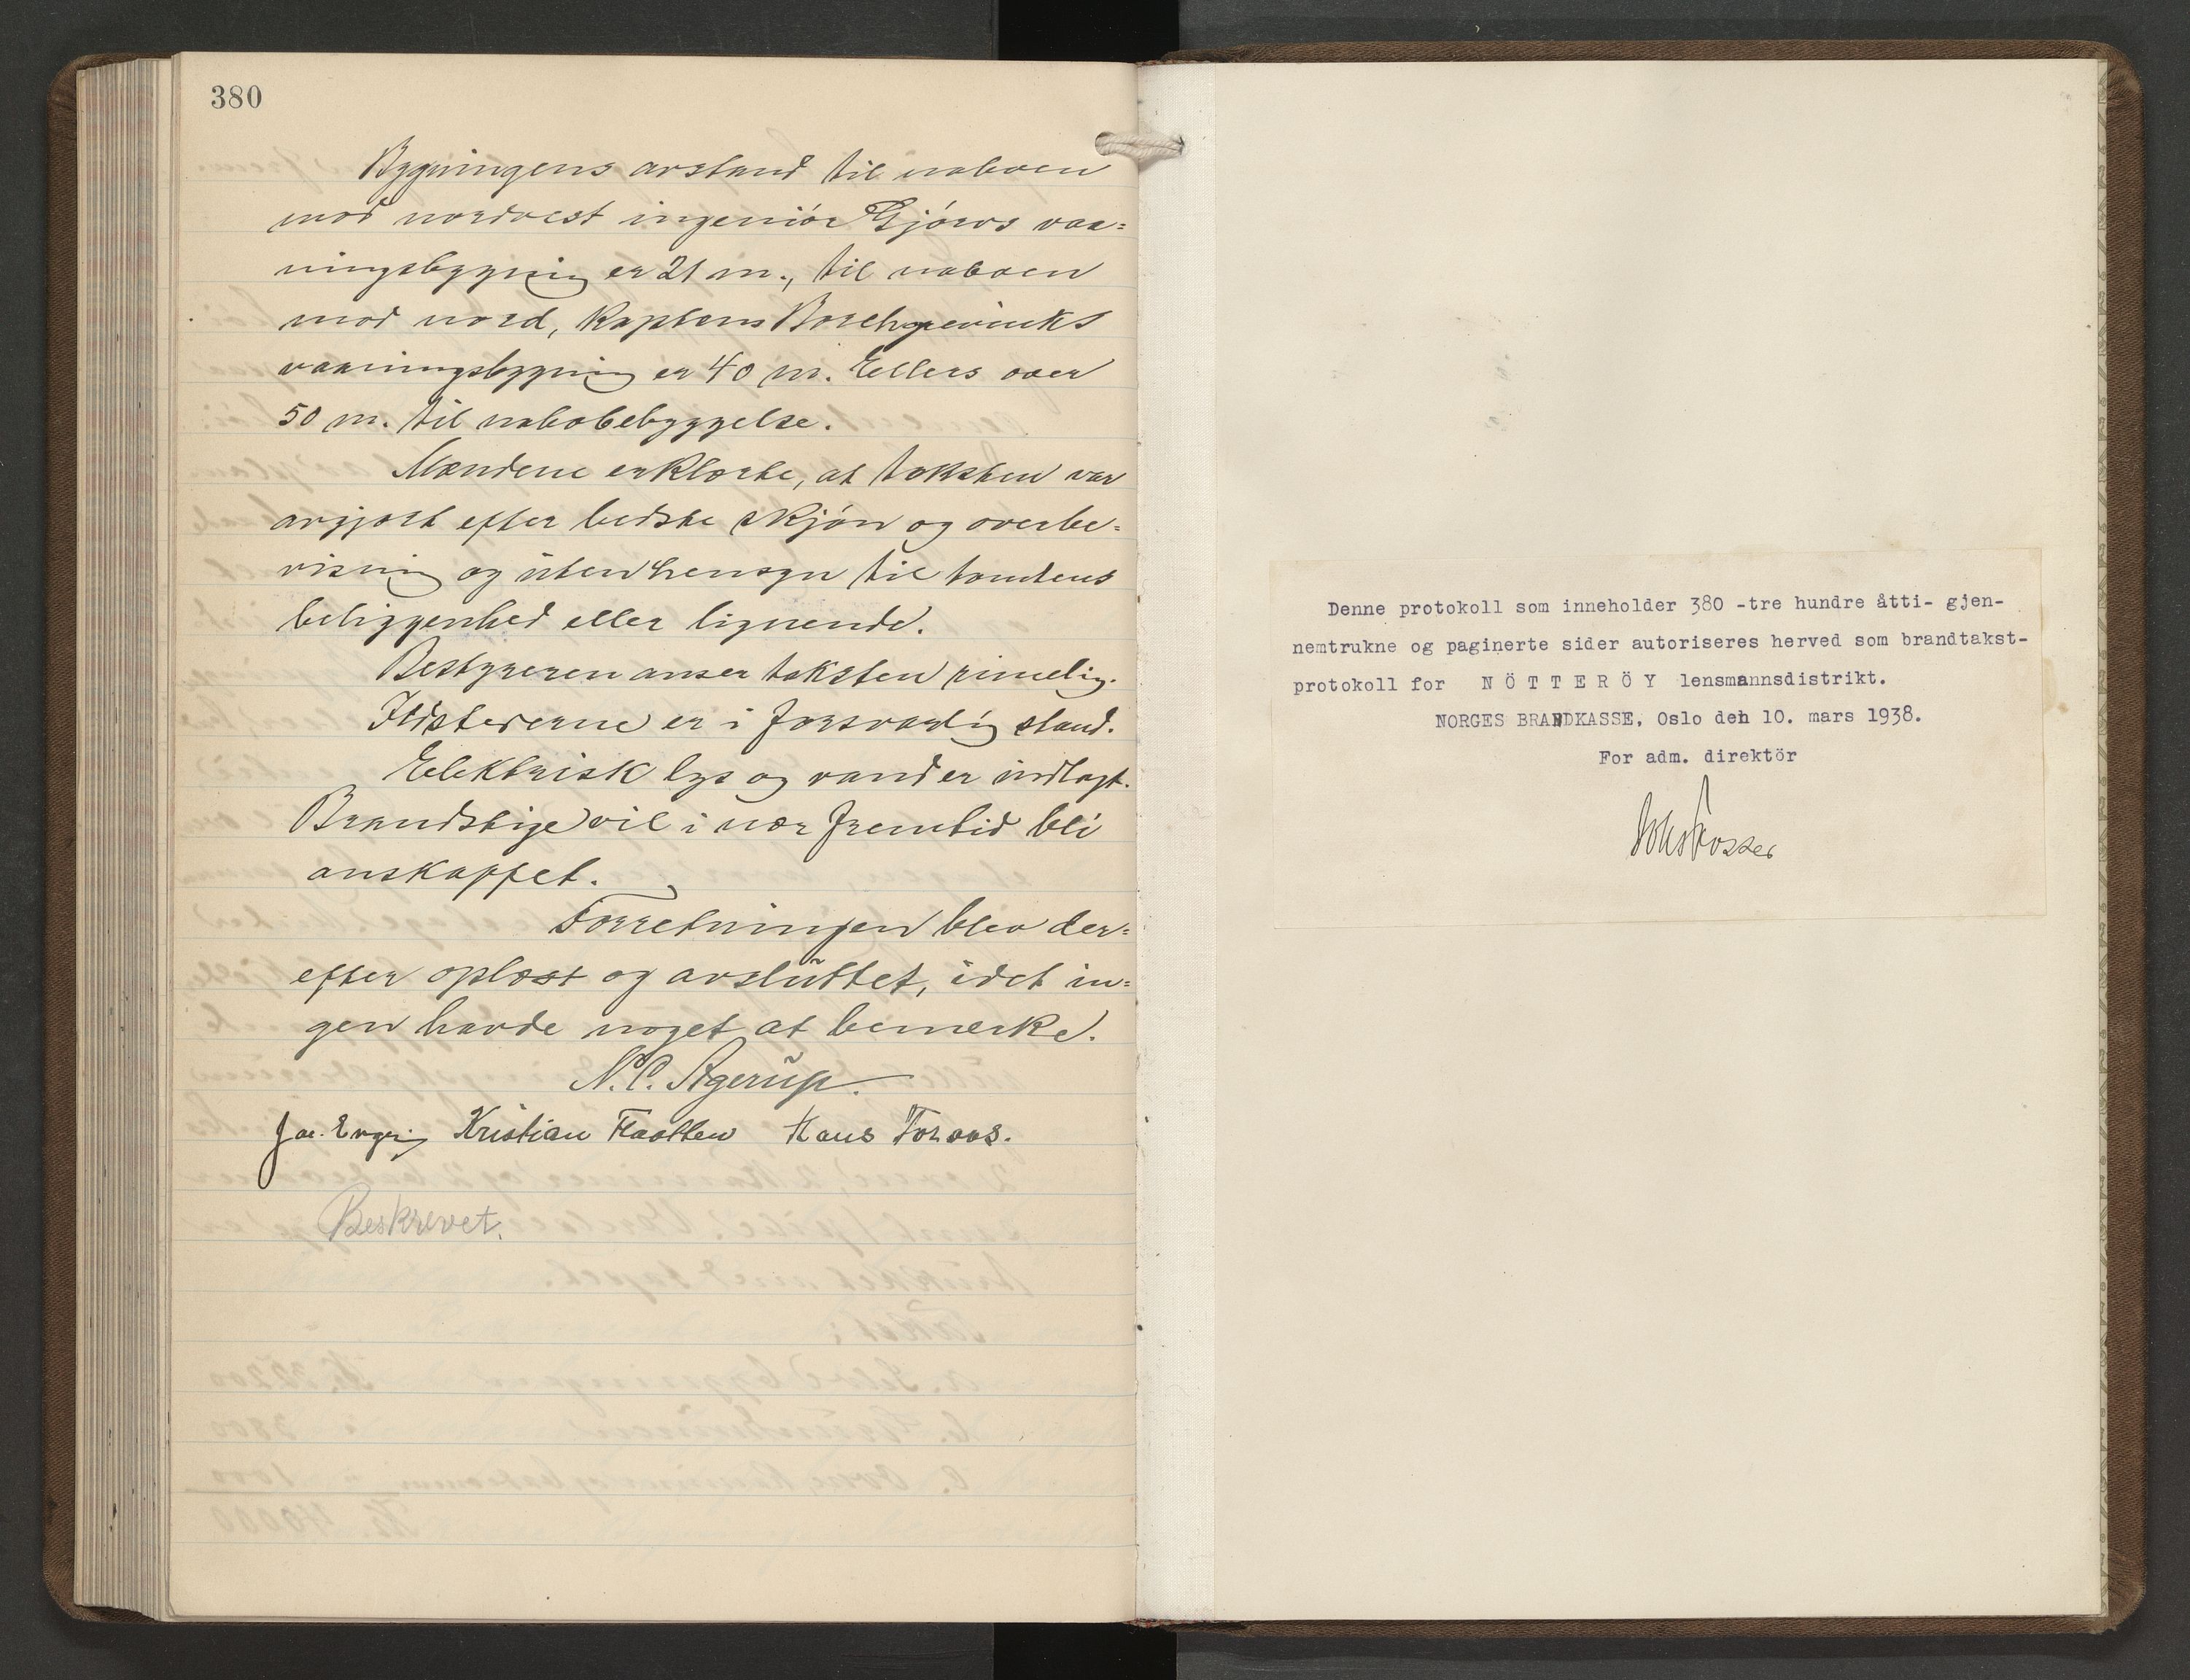 380
Bygningens avstand til naboen
mod nordvest ingeniör Gjörvs vaa=
ningsbygning er 21 m., til naboen
mod nord, kaptens Borchgrevinks
vaaningsbygning er 40 m. Ellers over
50 m. til nabobebyggelse.
Mændene erklærte, at taksten var
avgjort efter bedste skjön og overbe=
visning og uten hensyn til tomtens
beliggenhed eller lignende.
Bestyreren anser taksten rimelig.
Ildstederne er i forsvarlig stand.
Elektrisk lys og vand er indlagt.
Brandstige vil i nær fremtid bli
anskaffet.
Forretningen blev der=
efter oplæst og avsluttet, idet in=
gen havde noget at bemerke.
N.C. Agerup.
Jac. Kristian Flaatten Hans Foraas.
Beskrevet.
Denne protokoll som inneholder 380 -tre hundre åtti- gjen-
nemtrukne og paginerte sider autoriseres herved som brandtakst-
protokoll for N Ö T T E R Ö Y lensmannsdistrikt.
NORGES BRANDKASSE, Oslo den 10. mars 1938.
For adm. direktör